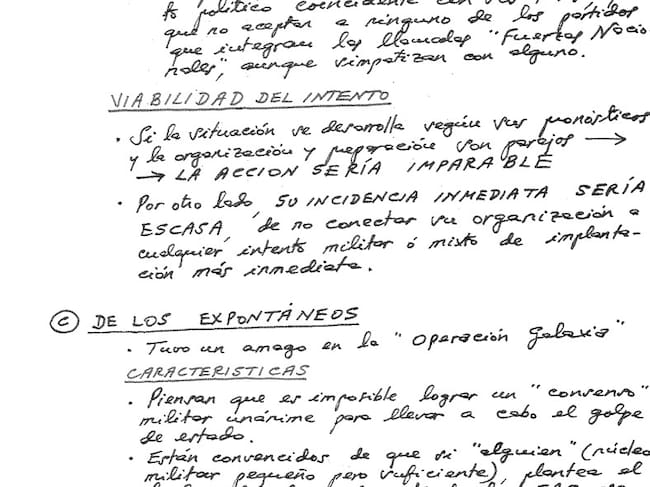 to político coincidente con
que no aceptan a ninguno de los partidos
que integran las llamadas "Fuerzas Nacio
nales", aunque simpatizan con alguno.
VIABILIDAD DEL INTENTO
· Si la situación se desarrolla según sus pronósticos
y la organización y preparación son parejos →
→ LA ACCION SERÍA IMPARABLE
· Por otro lado, SU INCIDENCIA INMEDIATA SERÍA
ESCASA, de no conectar su organización a
cualquier intento militar ó mixto de implanta-
ción más inmediata.
C DE LOS EXPONTÁNEOS
· Tuvo un amago en la "Operación Galaxia"
CARACTERISTICAS
· Piensan que es imposible lograr un "consenso"
militar unánime para llevar a cabo el golpe
de estado.
· Están convencidos de que si "alguien" (núcleo
militar pequeño pero suficiente), plantea el